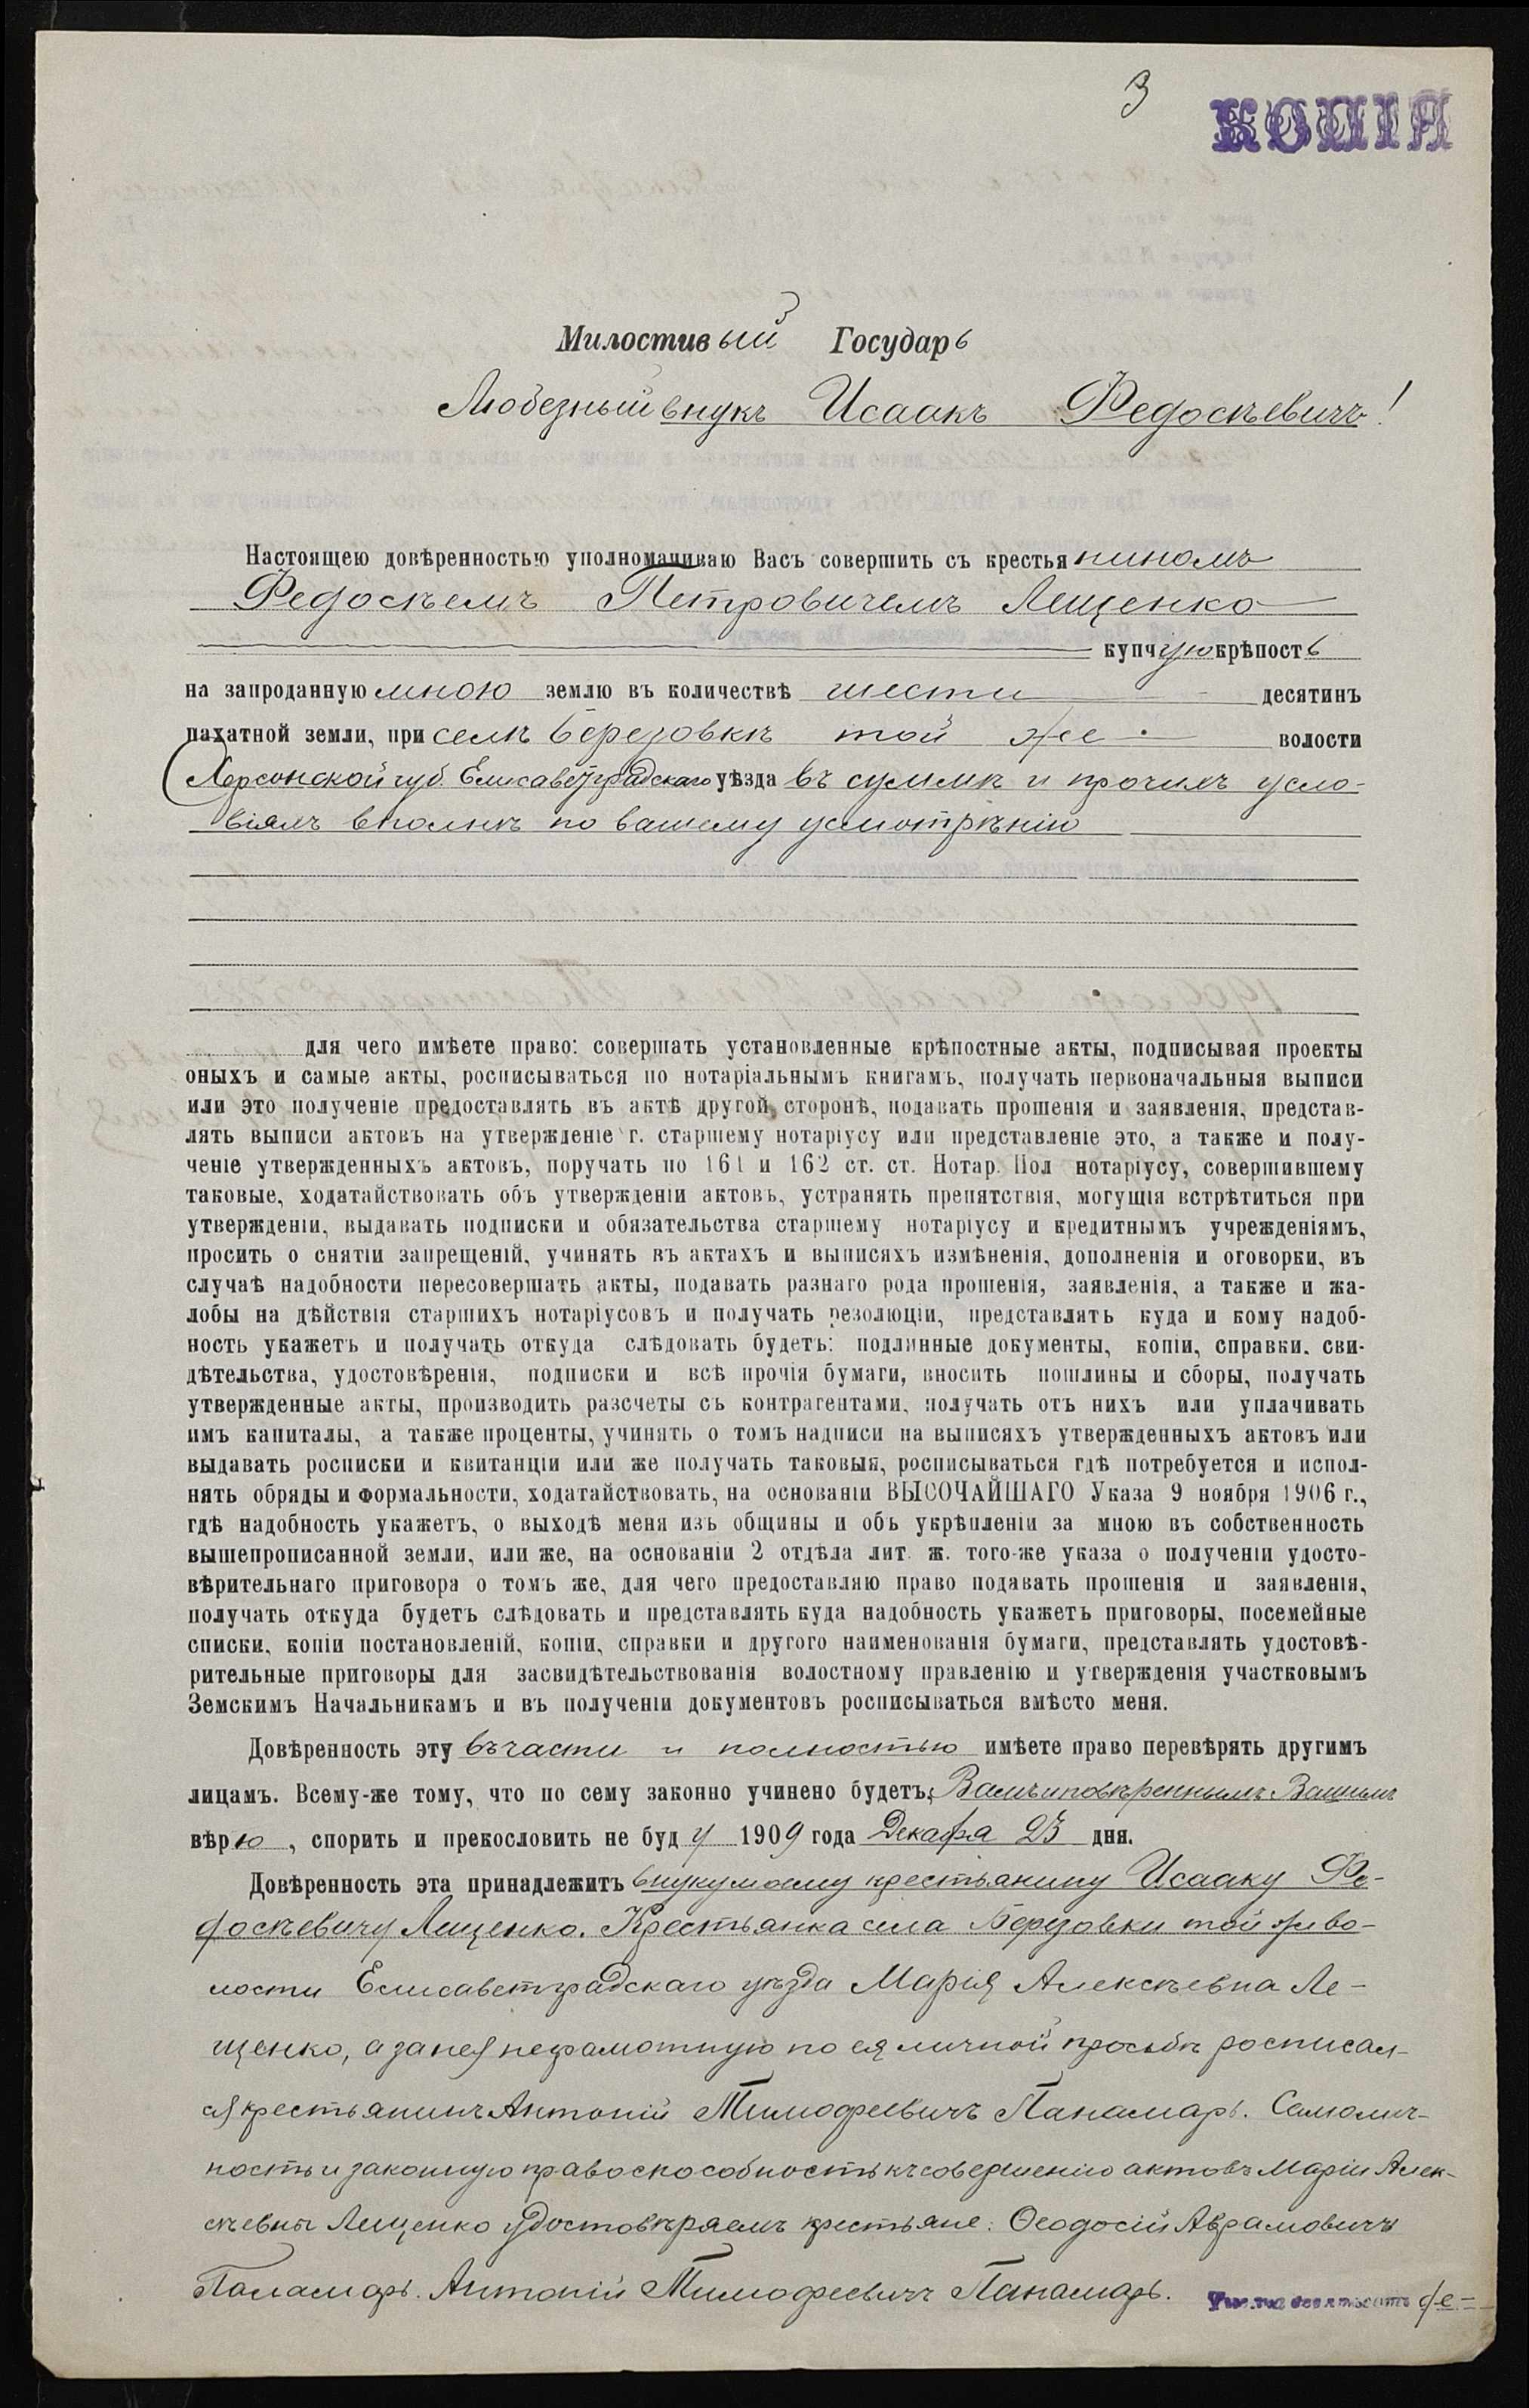 3
КОПІЯ
Милостивый Государь
Любезный внукъ Исаакъ Федосѣевичъ!
Настоящею довѣренностью уполномачиваю Васъ совершить съ крестьяниномъ
Федосѣемъ Петровичемъ Лещенко
купчую крѣпость
на запроданную мною землю въ количествѣ шести десятинъ
пахатной земли, при селѣ Березовкѣ той же волости
Херсонской губ. Елисаветградскаго уѣзда въ суммѣ и прочихъ усло-
віяхъ вполнѣ по вашему усмотрѣнію
для чего имѣете право: совершать установленные крѣпостные акты, подписывая проекты
оныхъ и самые акты, росписываться по нотаріальнымъ книгамъ, получать первоначальныя выписи
или это полученіе предоставлять въ актѣ другой сторонѣ, подавать прошенія и заявленія, представ-
лять выписи актовъ на утвержденіе г. старшему нотаріусу или представленіе это, а также и полу-
ченіе утвержденныхъ актовъ, поручать по 161 и 162 ст. ст. Нотар. Пол нотаріусу, совершившему
таковые, ходатайствовать объ утвержденіи актовъ, устранять препятствія, могущія встрѣтиться при
утвержденіи, выдавать подписки и обязательства старшему нотаріусу и кредитнымъ учрежденіямъ,
просить о снятіи запрещеній, учинять въ актахъ и выписяхъ измѣненія, дополненія и оговорки, въ
случаѣ надобности пересовершать акты, подавать разнаго рода прошенія, заявленія, а также и жа-
лобы на дѣйствія старшихъ нотаріусовъ и получать резолюціи, представлять куда и кому надоб-
ность укажетъ и получать откуда слѣдовать будетъ: подлинные документы, копіи, справки, сви-
дѣтельства, удостовѣренія, подписки и всѣ прочія бумаги, вносить пошлины и сборы, получать
утвержденные акты, производить разсчеты съ контрагентами, получать отъ нихъ или уплачивать
имъ капиталы, а также проценты, учинять о томъ надписи на выписяхъ утвержденныхъ актовъ или
выдавать росписки и квитанціи или же получать таковыя, росписываться гдѣ потребуется и испол-
нять обряды и формальности, ходатайствовать, на основаніи ВЫСОЧАЙШАГО Указа 9 ноября 1906 г.,
гдѣ надобность укажетъ, о выходѣ меня изъ общины и объ укрѣпленіи за мною въ собственность
вышепрописанной земли, или же, на основаніи 2 отдѣла лит. ж. того-же указа о полученіи удосто-
вѣрительнаго приговора о томъ же, для чего предоставляю право подавать прошенія и заявленія,
получать откуда будетъ слѣдовать и представлять куда надобность укажетъ приговоры, посемейные
списки, копіи постановленій, копіи, справки и другого наименованія бумаги, представлять удостовѣ-
рительные приговоры для засвидѣтельствованія волостному правленію и утвержденія участковымъ
Земскимъ Начальникамъ и въ полученіи документовъ росписываться вмѣсто меня.
Довѣренность эту въ части и полностью имѣете право перевѣрять другимъ
лицамъ. Всему-же тому, что по сему законно учинено будетъ, Вамъ и повѣреннымъ Вашимъ
вѣрю, спорить и прекословить не буду 1909 года Декабря 23 дня.
Довѣренность эта принадлежитъ внуку моему крестьянину Исааку Фе-
досѣевичу Лещенко. Крестьянка села Березовки той же во-
лости Елисаветградскаго уѣзда Марія Алексѣевна Ле-
щенко, а за нея неграмотную по ея личной просьбѣ росписал-
ся крестьянинъ Антоній Тимофеевичъ Панамарь. Самолич-
ность и законную правоспособность къ совершенію актовъ Маріи Алек-
сѣевны Лещенко удостовѣряемъ крестьяне: Ѳеодосій Аврамовичъ
Паламарь. Антоній Тимофеевичъ Панамарь. де=